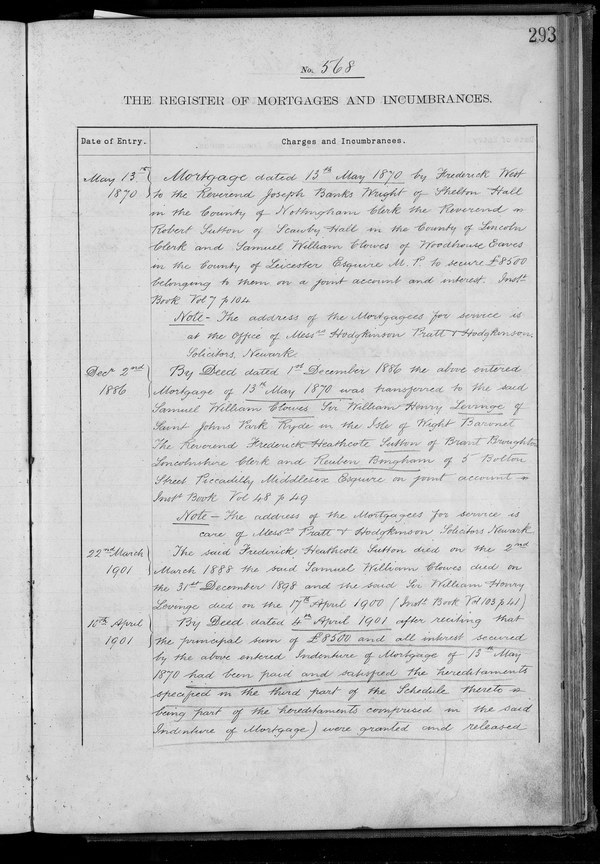 293
No. 568
THE REGISTER OF MORTGAGES AND INCUMBRANCES.
Date of Entry. Charges and Incumbrances.
May 13th Mortgage dated 13th May 1870 by Frederick West
1870 to the Reverend Joseph Banks Wright of Shelton Hall
in the County of Nottingham Clerk the Reverend
Robert Sutton of Scawby Hall in the County of Lincoln
Clerk and Samuel William Clowes of Woodhouse Eaves
in the County of Leicester Esquire M.P. to secure £8500
belonging to them on a joint account and interest. Inst.
Book Vol 7 p 104
Note - The address of the Mortgagees for service is
at the Office of Messrs Hodgkinson Pratt & Hodgkinson,
Solicitors, Newark.
Decr 2nd By Deed dated 1st December 1886 the above entered
1886 Mortgage of 13th May 1870 was transferred to the said
Samuel William Clowes Sir William Henry Levinge of
Saint Johns Park Ryde in the Isle of Wight Baronet
The Reverend Frederick Heathcote Sutton of Brant Broughton
Lincolnshire Clerk and Reuben Bingham of 5 Bolton
Street Piccadilly Middlesex Esquire on joint account
Inst. Book Vol 48 p 49
Note - The address of the Mortgagees for service is
care of Messrs Pratt & Hodgkinson Solicitors Newark
22nd March The said Frederick Heathcote Sutton died on the 2nd
1901 March 1888 the said Samuel William Clowes died on
the 31st December 1898 and the said Sir William Henry
Levinge died on the 17th April 1900 (Inst. Book Vol 103 p 41)
April By Deed dated 4th April 1901 after reciting that
1901 the principal sum of £8500 and all interest secured
by the above entered Indenture of Mortgage of 13th May
1870 had been paid and satisfied the hereditaments
specified in the third part of the Schedule thereto
being part of the hereditaments comprised in the said
Indenture of Mortgage) were granted and released